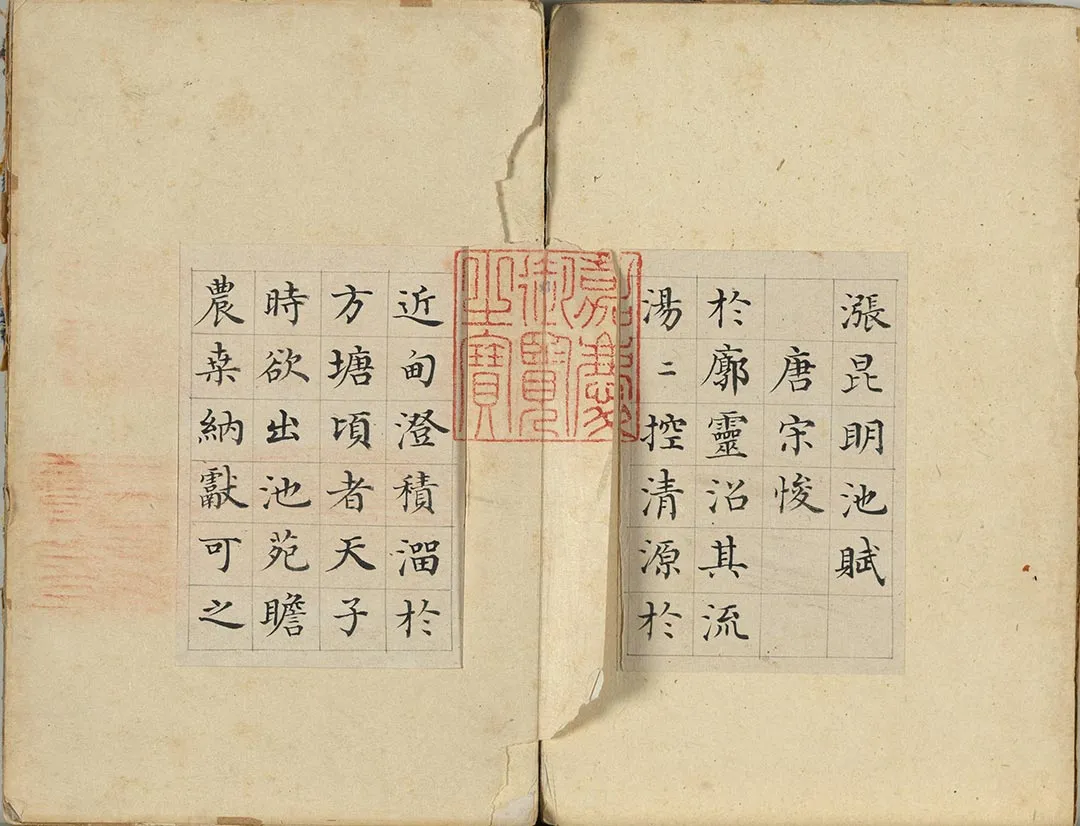 漲昆明池賦
唐宋悛
於廓靈沼其流
湯二控清源於
嘉慶
御覽
之寶
近甸澄積溜於
方塘頃者天子
時欲出池苑瞻
農桒納獻可之